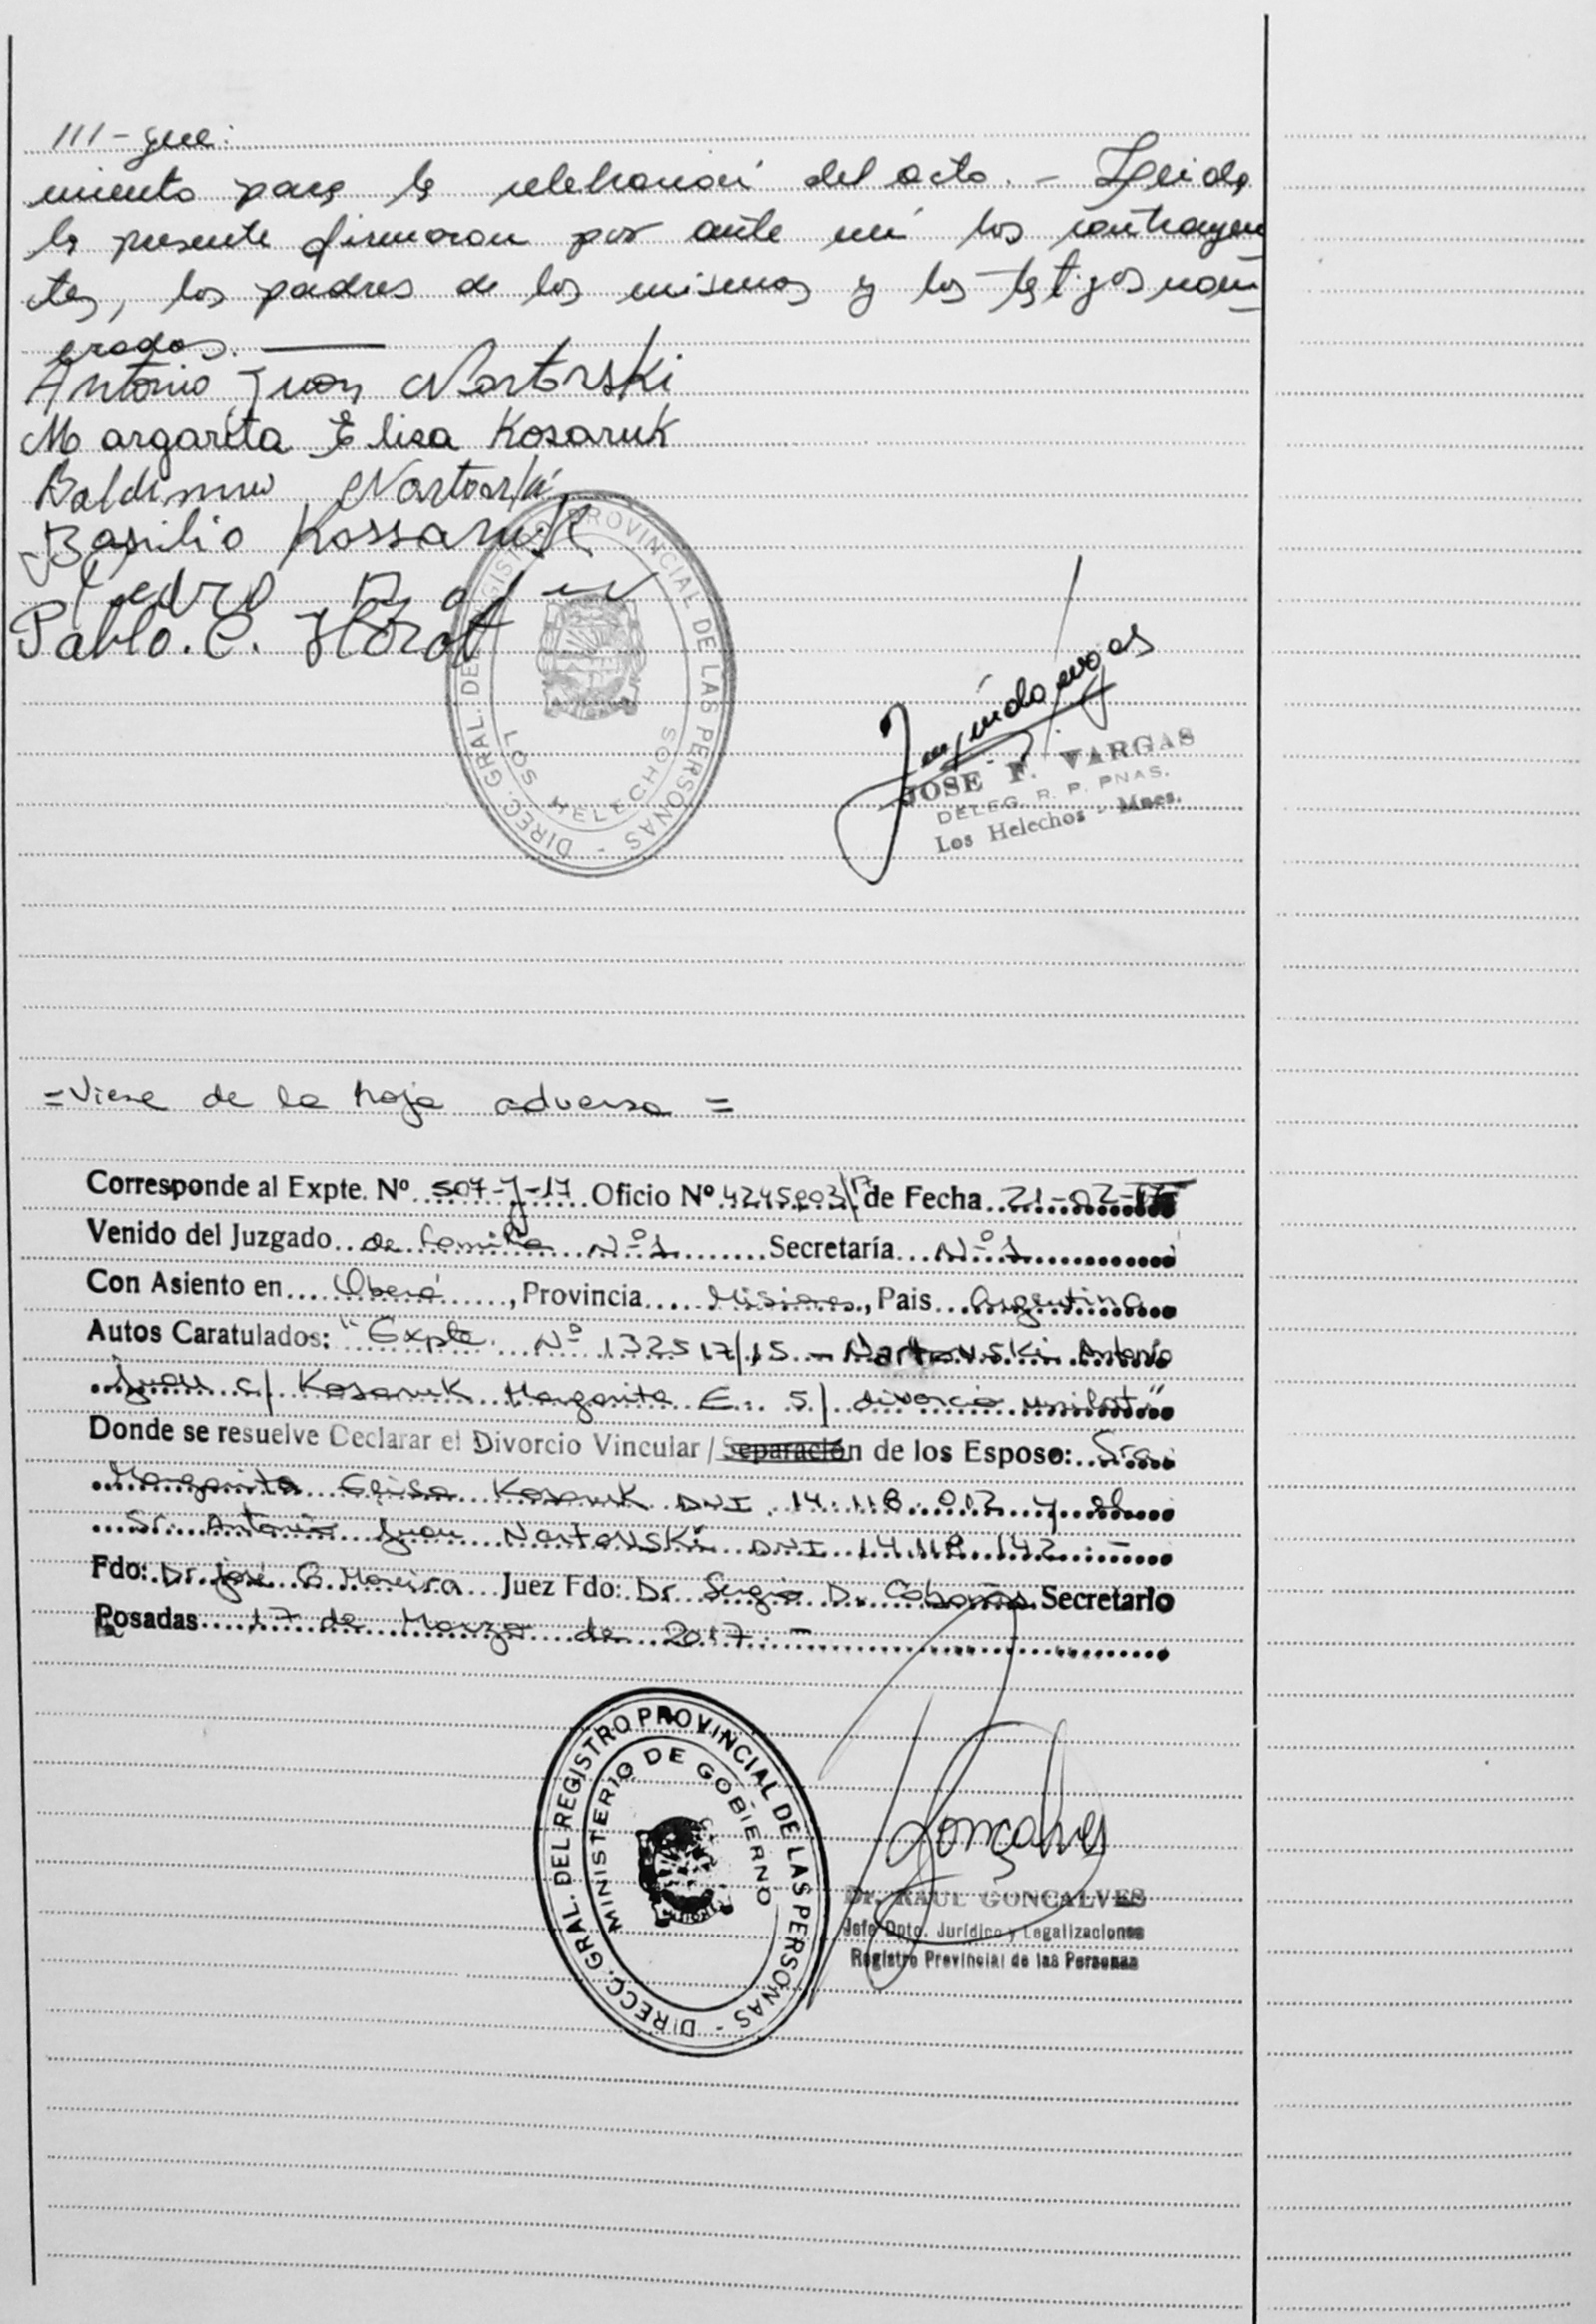 III - que:
miento para la celebración del acto. - Leida
la presente firmaron por ante mi los contrayen
tes, los padres de los mismos y los testigos nom
brados.
Antonio Juan Nortovski
Margarita Elisa Kosaruk
Baldimiro Nortovski
Basilio Kossaruk
Pedro
Pablo. C. Horot
DIRECC. GRAL. DEL REGISTRO PROVINCIAL DE LAS PERSONAS -
LOS HELECHOS
JOSE F. VARGAS
DELEG. R. P. PNAS.
Los Helechos - Mnes.
= Viene de la hoja adversa =
Corresponde al Expte. Nº 507-J-17 Oficio Nº /17 de Fecha 21-02-17
Venido del Juzgado de Familia Nº 1 Secretaría Nº 1
Con Asiento en Oberá, Provincia Misiones, Pais Argentina
Autos Caratulados: "Expte. Nº 132517/15 - Nortovski Antonio
Juan c/ Kosaruk Margarita E. s/ divorcio unilat"
Donde se resuelve Declarar el Divorcio Vincular / Separación de los Esposo: Sra.
Margarita Elisa Kosaruk DNI 14.118.012 y el
Sr. Antonio Juan Nortovski DNI 14.118.142.-
Fdo: Dr. José G. Moreira Juez Fdo: Dr. Sergio D. Cabañas Secretario
Posadas 17 de Marzo de 2017 -
DIRECC. GRAL. DEL REGISTRO PROVINCIAL DE LAS PERSONAS -
MINISTERIO DE GOBIERNO
Goncalves
Dr. RAUL GONCALVES
Jefe Dpto. Jurídico y Legalizaciones
Registro Provincial de las Personas